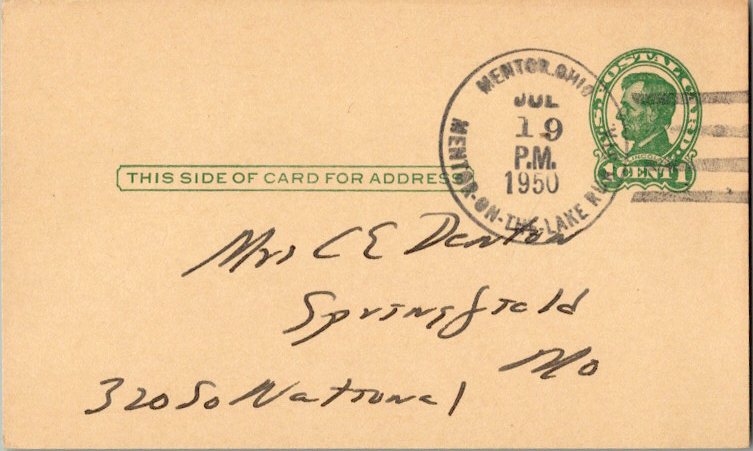 MENTOR, OHIO
JUL
19
P.M.
1950
MENTOR-ON-THE-LAKE
U.S. POSTAL CARD
LINCOLN
1 CENT 1
THIS SIDE OF CARD FOR ADDRESS
Mrs C E Denton
Springfield
Mo
320 So National